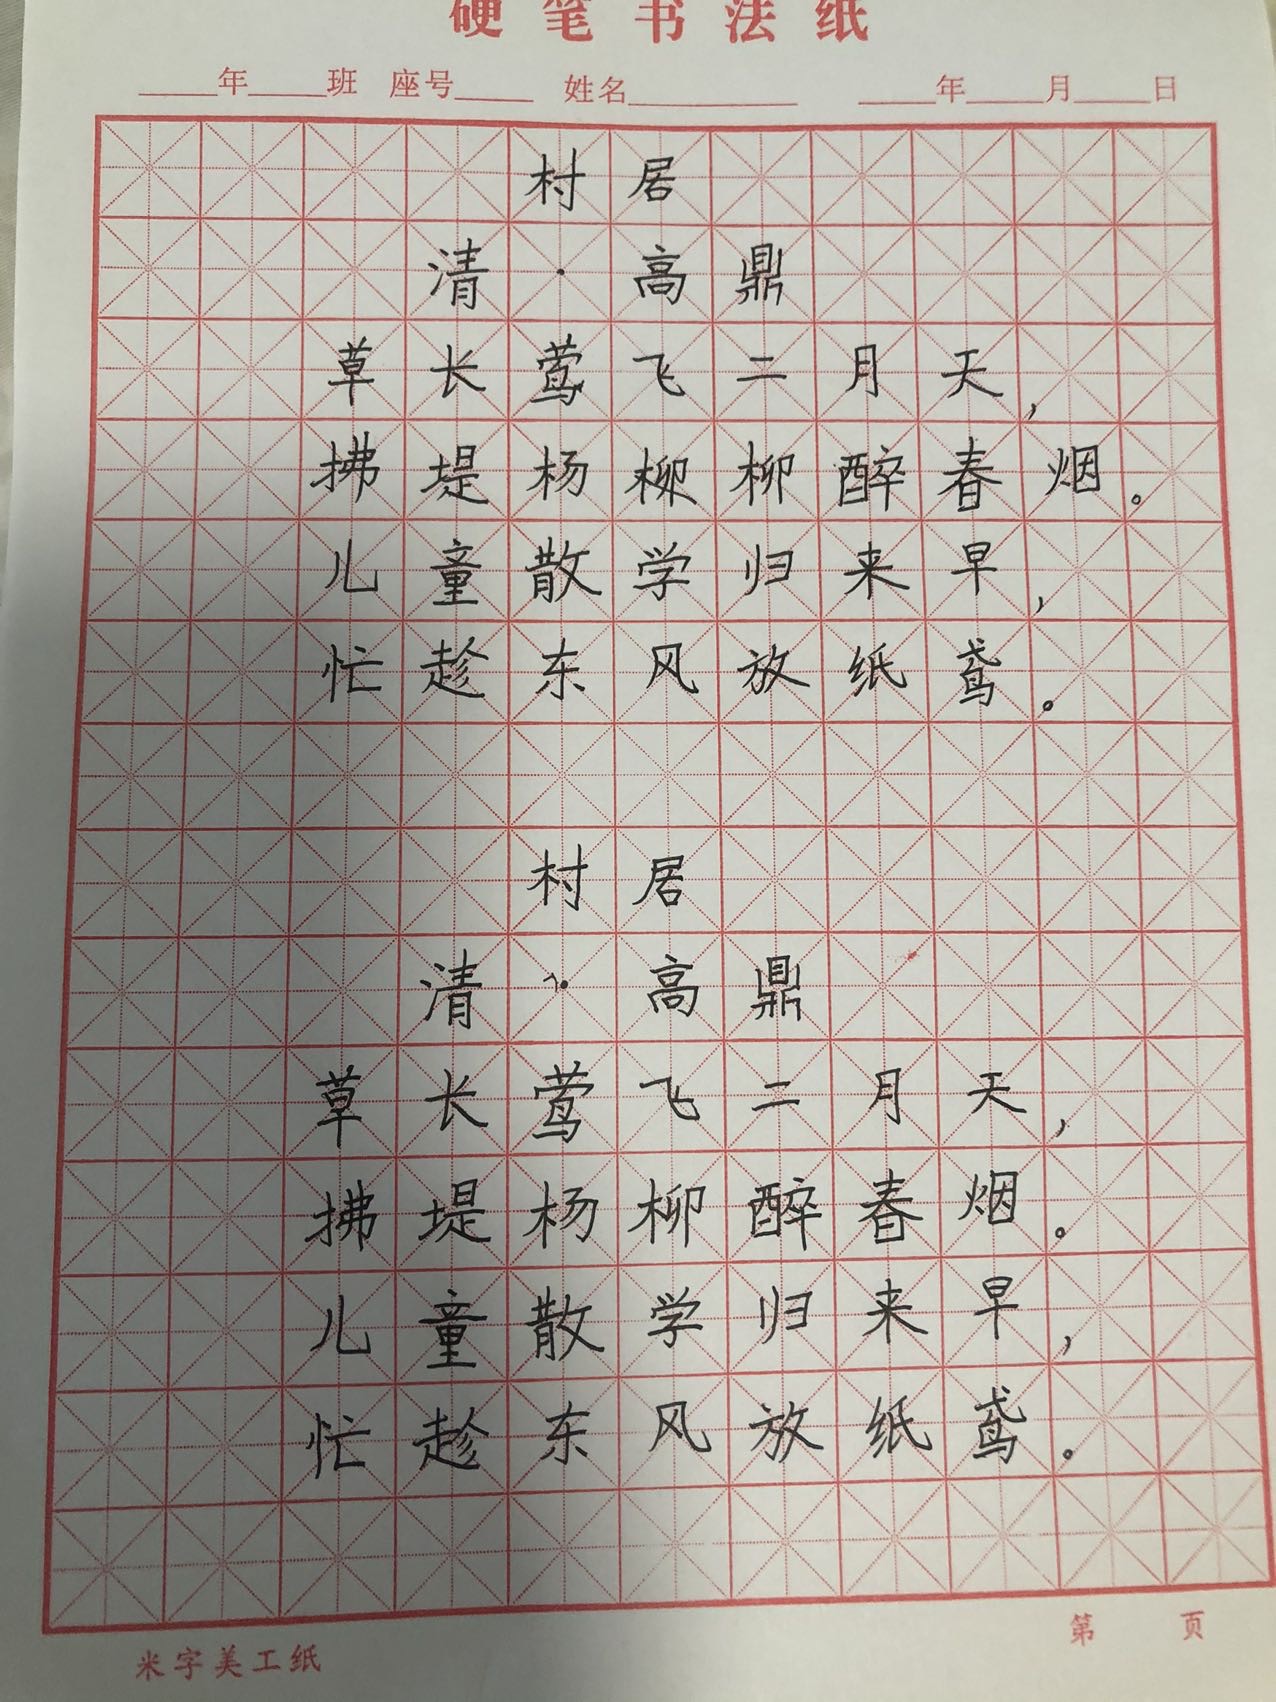 硬笔书法纸
____年____班 座号____ 姓名________ ____年____月____日
村居
清·高鼎
草长莺飞二月天，
拂堤杨柳柳醉春烟。
儿童散学归来早，
忙趁东风放纸鸢。
村居
清·高鼎
草长莺飞二月天，
拂堤杨柳醉春烟。
儿童散学归来早，
忙趁东风放纸鸢。
第 页
米字美工纸